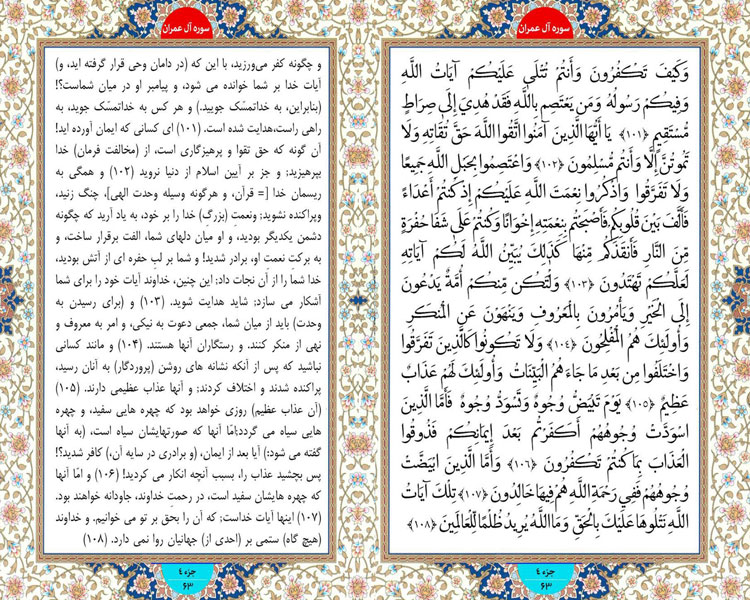 سوره آل عمران
وَكَيْفَ تَكْفُرُونَ وَأَنتُمْ تُتْلَى عَلَيْكُمْ آيَاتُ اللَّهِ
وَفِيكُمْ رَسُولُهُ وَمَن يَعْتَصِم بِاللَّهِ فَقَدْ هُدِيَ إِلَى صِرَاطٍ
مُّسْتَقِيمٍ ﴿۱۰۱﴾ يَا أَيُّهَا الَّذِينَ آمَنُوا اتَّقُوا اللَّهَ حَقَّ تُقَاتِهِ وَلَا
تَمُوتُنَّ إِلَّا وَأَنتُم مُّسْلِمُونَ ﴿۱۰۲﴾ وَاعْتَصِمُوا بِحَبْلِ اللَّهِ جَمِيعًا
وَلَا تَفَرَّقُوا وَاذْكُرُوا نِعْمَتَ اللَّهِ عَلَيْكُمْ إِذْ كُنتُمْ أَعْدَاءً
فَأَلَّفَ بَيْنَ قُلُوبِكُمْ فَأَصْبَحْتُم بِنِعْمَتِهِ إِخْوَانًا وَكُنتُمْ عَلَى شَفَا حُفْرَةٍ
مِّنَ النَّارِ فَأَنقَذَكُم مِّنْهَا كَذَلِكَ يُبَيِّنُ اللَّهُ لَكُمْ آيَاتِهِ
لَعَلَّكُمْ تَهْتَدُونَ ﴿۱۰۳﴾ وَلْتَكُن مِّنكُمْ أُمَّةٌ يَدْعُونَ
إِلَى الْخَيْرِ وَيَأْمُرُونَ بِالْمَعْرُوفِ وَيَنْهَوْنَ عَنِ الْمُنكَرِ
وَأُولَئِكَ هُمُ الْمُفْلِحُونَ ﴿۱۰۴﴾ وَلَا تَكُونُوا كَالَّذِينَ تَفَرَّقُوا
وَاخْتَلَفُوا مِن بَعْدِ مَا جَاءَهُمُ الْبَيِّنَاتُ وَأُولَئِكَ لَهُمْ عَذَابٌ
عَظِيمٌ ﴿۱۰۵﴾ يَوْمَ تَبْيَضُّ وُجُوهٌ وَتَسْوَدُّ وُجُوهٌ فَأَمَّا الَّذِينَ
اسْوَدَّتْ وُجُوهُهُمْ أَكَفَرْتُم بَعْدَ إِيمَانِكُمْ فَذُوقُوا
الْعَذَابَ بِمَا كُنتُمْ تَكْفُرُونَ ﴿۱۰۶﴾ وَأَمَّا الَّذِينَ ابْيَضَّتْ
وُجُوهُهُمْ فَفِي رَحْمَةِ اللَّهِ هُمْ فِيهَا خَالِدُونَ ﴿۱۰۷﴾ تِلْكَ آيَاتُ
اللَّهِ نَتْلُوهَا عَلَيْكَ بِالْحَقِّ وَمَا اللَّهُ يُرِيدُ ظُلْمًا لِّلْعَالَمِينَ ﴿۱۰۸﴾
جزء ٤
۶۳
سوره آل عمران
و چگونه کفر می‌ورزید، با این که (در دامان وحی قرار گرفته اید، و)
آیات خدا بر شما خوانده می شود، و پیامبر او در میان شماست؟!
(بنابراین، به خداتمسّک جویید.) و هر کس به خداتمسّک جوید، به
راهی راست،هدایت شده است. (۱۰۱) ای کسانی که ایمان آورده اید!
آن گونه که حق تقوا و پرهیزگاری است، از (مخالفت فرمان) خدا
بپرهیزید; و جز بر آیین اسلام از دنیا نروید (۱۰۲) و همگی به
ریسمان خدا [= قرآن، و هرگونه وسیله وحدت الهی]، چنگ زنید،
وپراکنده نشوید; ونعمتِ (بزرگِ) خدا را بر خود، به یاد آرید که چگونه
دشمن یکدیگر بودید، و او میان دلهای شما، الفت برقرار ساخت، و
به برکتِ نعمتِ او، برادر شدید! و شما بر لبِ حفره ای از آتش بودید،
خدا شما را از آن نجات داد; این چنین، خداوند آیات خود را برای شما
آشکار می سازد; شاید هدایت شوید. (۱۰۳) و (برای رسیدن به
وحدت) باید از میان شما، جمعی دعوت به نیکی، و امر به معروف و
نهی از منکر کنند. و رستگاران آنها هستند. (۱۰۴) و مانند کسانی
نباشید که پس از آنکه نشانه های روشن (پروردگار) به آنان رسید،
پراکنده شدند و اختلاف کردند; و آنها عذاب عظیمی دارند. (۱۰۵)
(آن عذاب عظیم) روزی خواهد بود که چهره هایی سفید، و چهره
هایی سیاه می گردد;امّا آنها که صورتهایشان سیاه است، (به آنها
گفته می شود:) آیا بعد از ایمان، (و برادری در سایه آن،) کافر شدید؟!
پس بچشید عذاب را، بسبب آنچه انکار می کردید! (۱۰۶) و امّا آنها
که چهره هایشان سفید است، در رحمتِ خداوند، جاودانه خواهند بود.
(۱۰۷) اینها آیات خداست; که آن را بحق بر تو می خوانیم. و خداوند
(هیچ گاه) ستمی بر (احدی از) جهانیان روا نمی دارد. (۱۰۸)
جزء ٤
۶۳